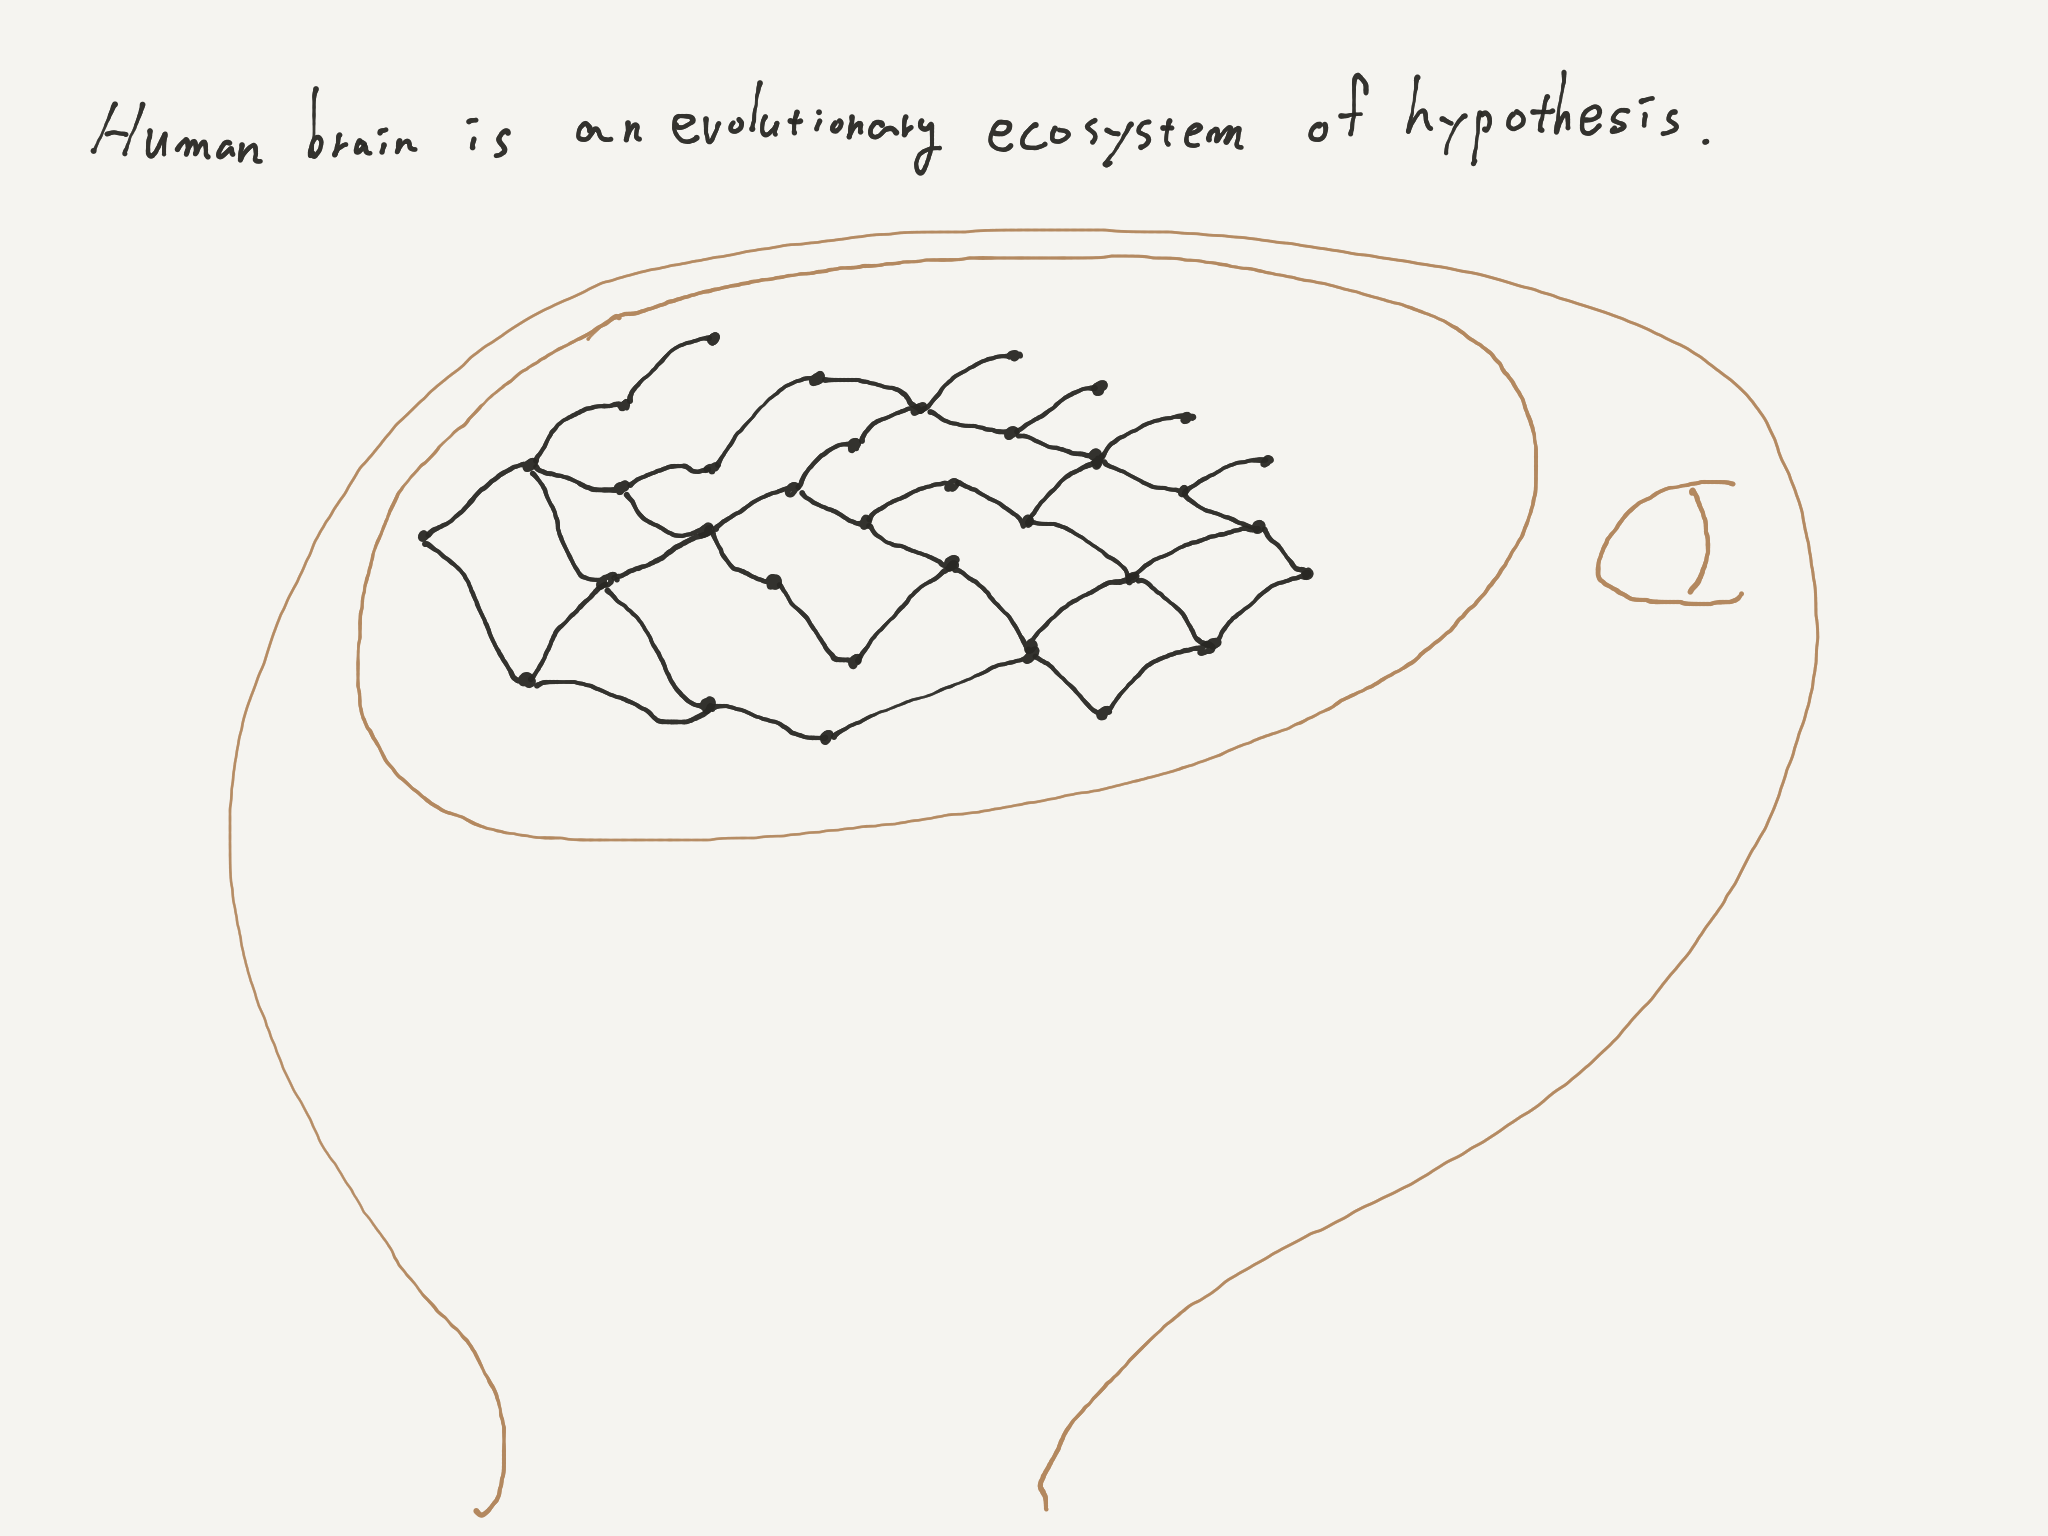 Human brain is an evolutionary ecosystem of hypothesis.